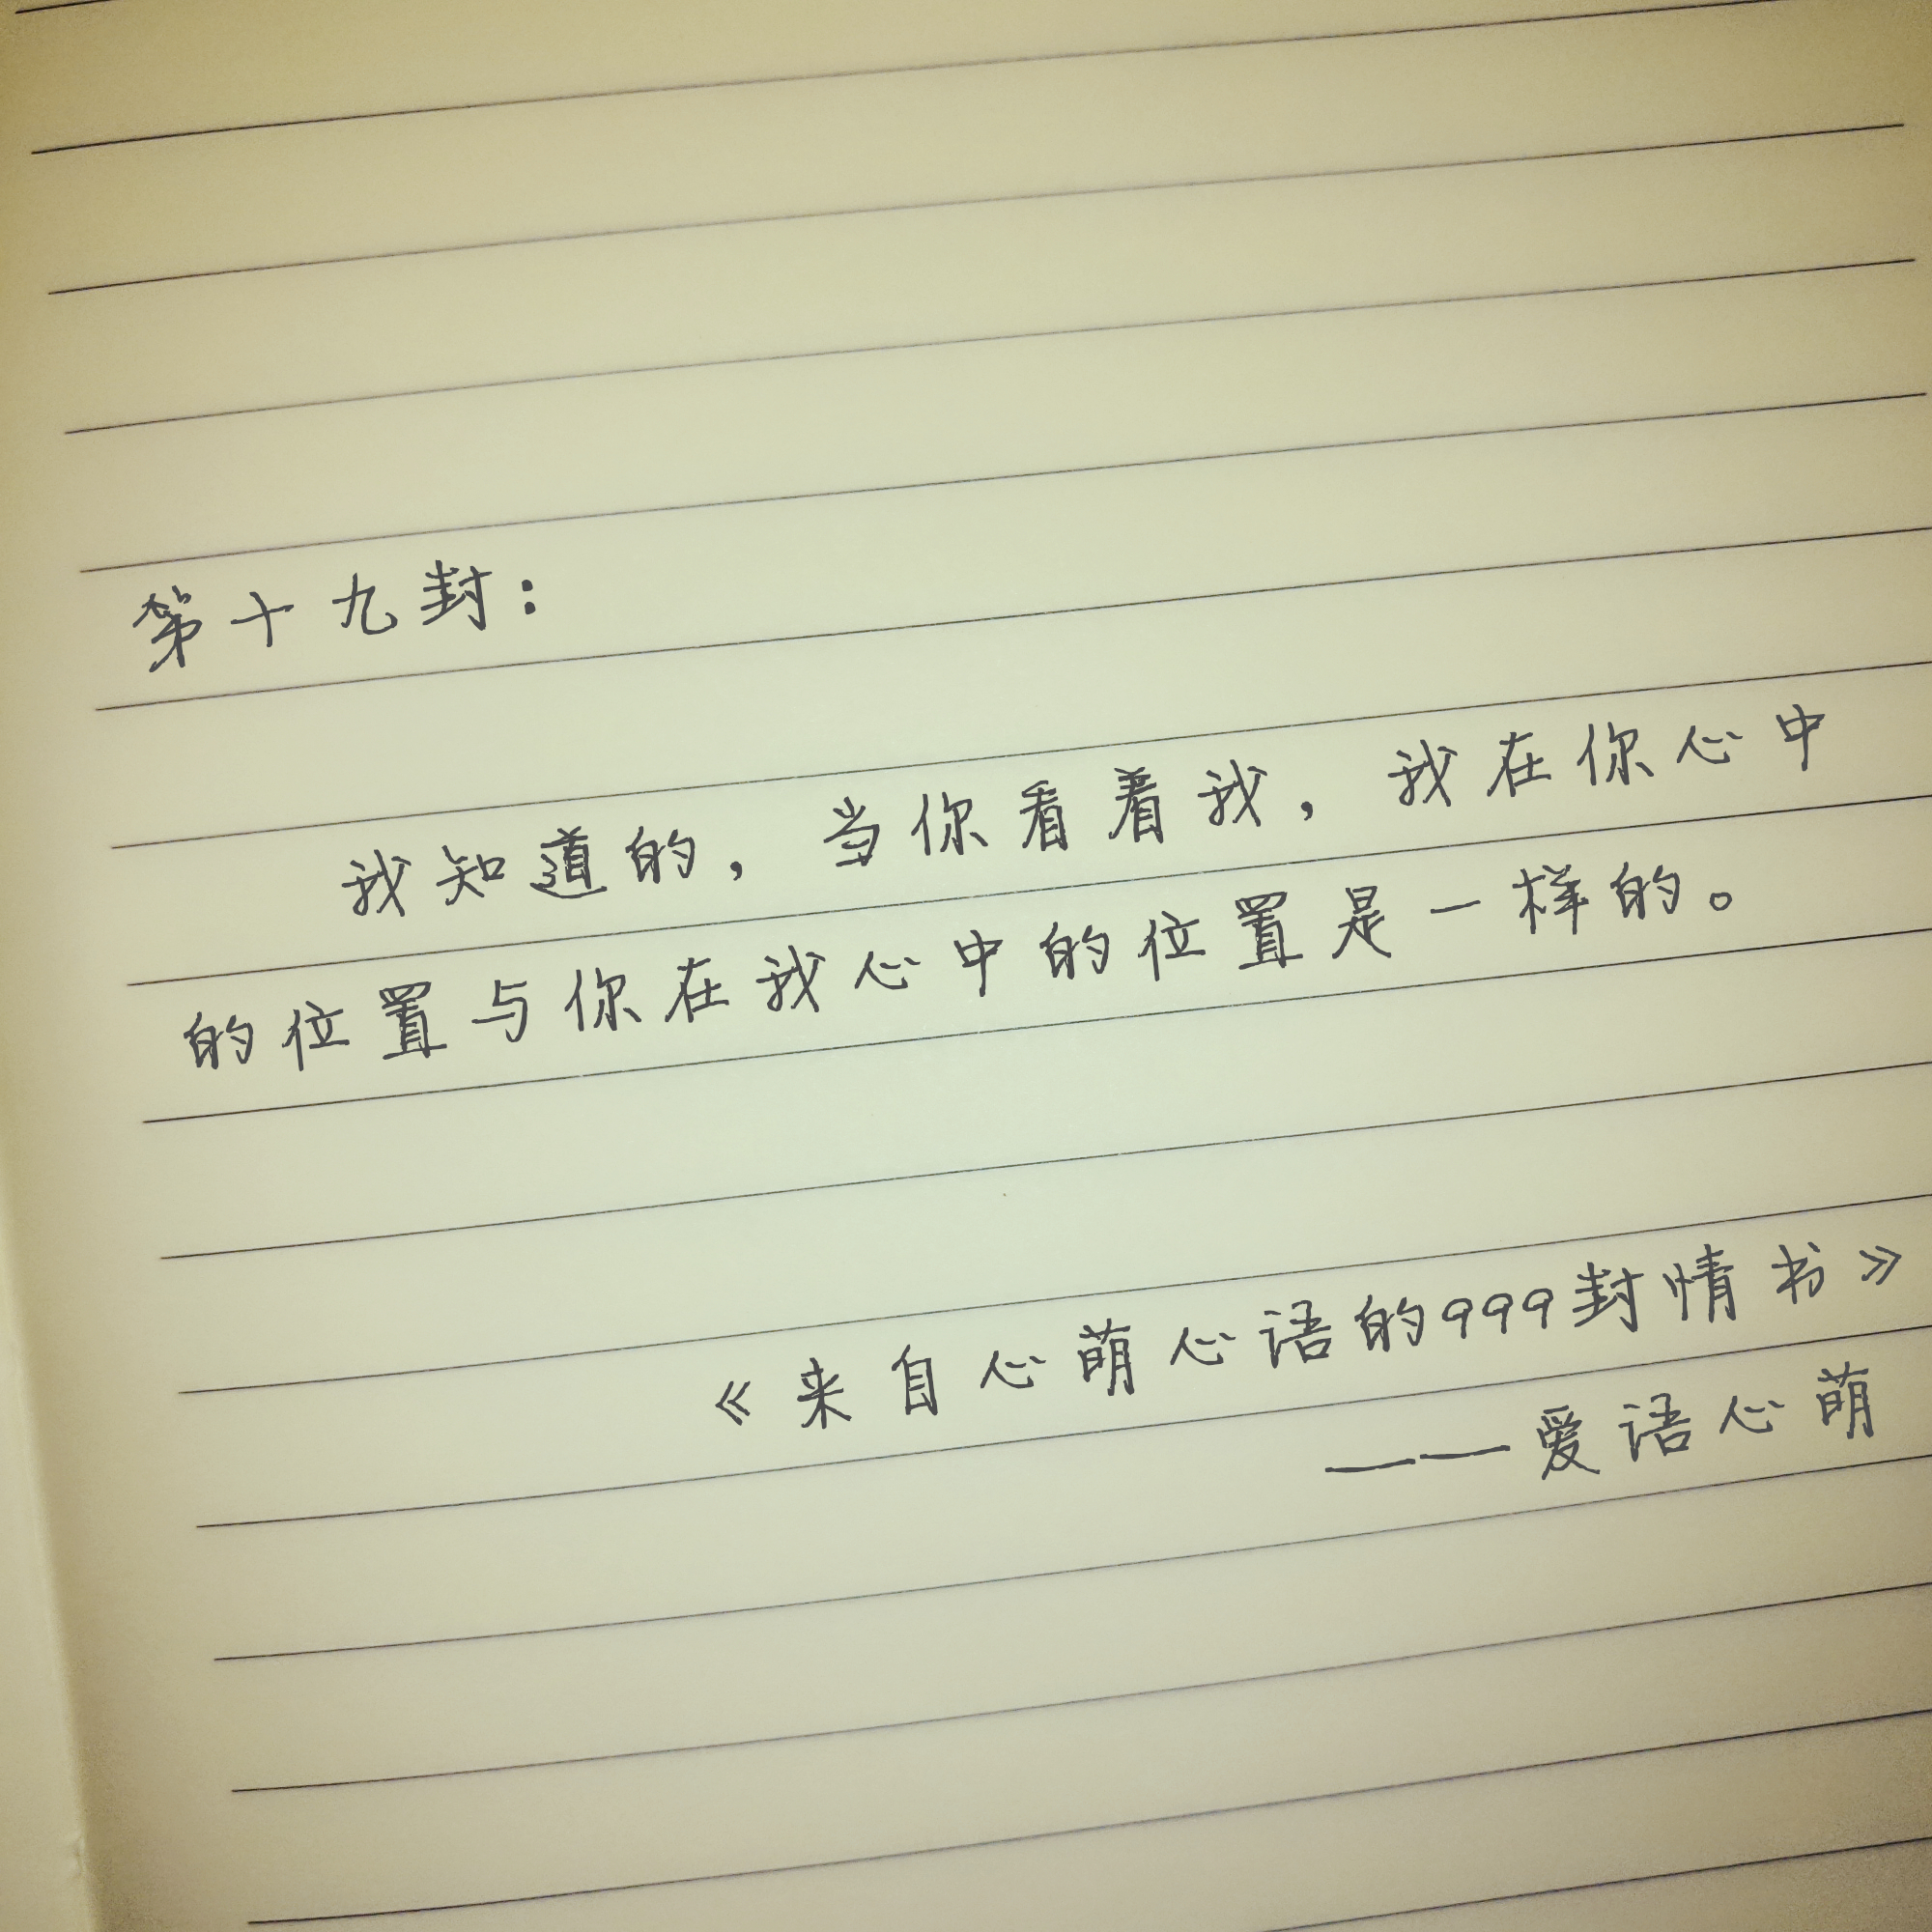 第十九封：
我知道的，当你看着我，我在你心中
的位置与你在我心中的位置是一样的。
《来自心萌心语的999封情书》
——爱语心萌